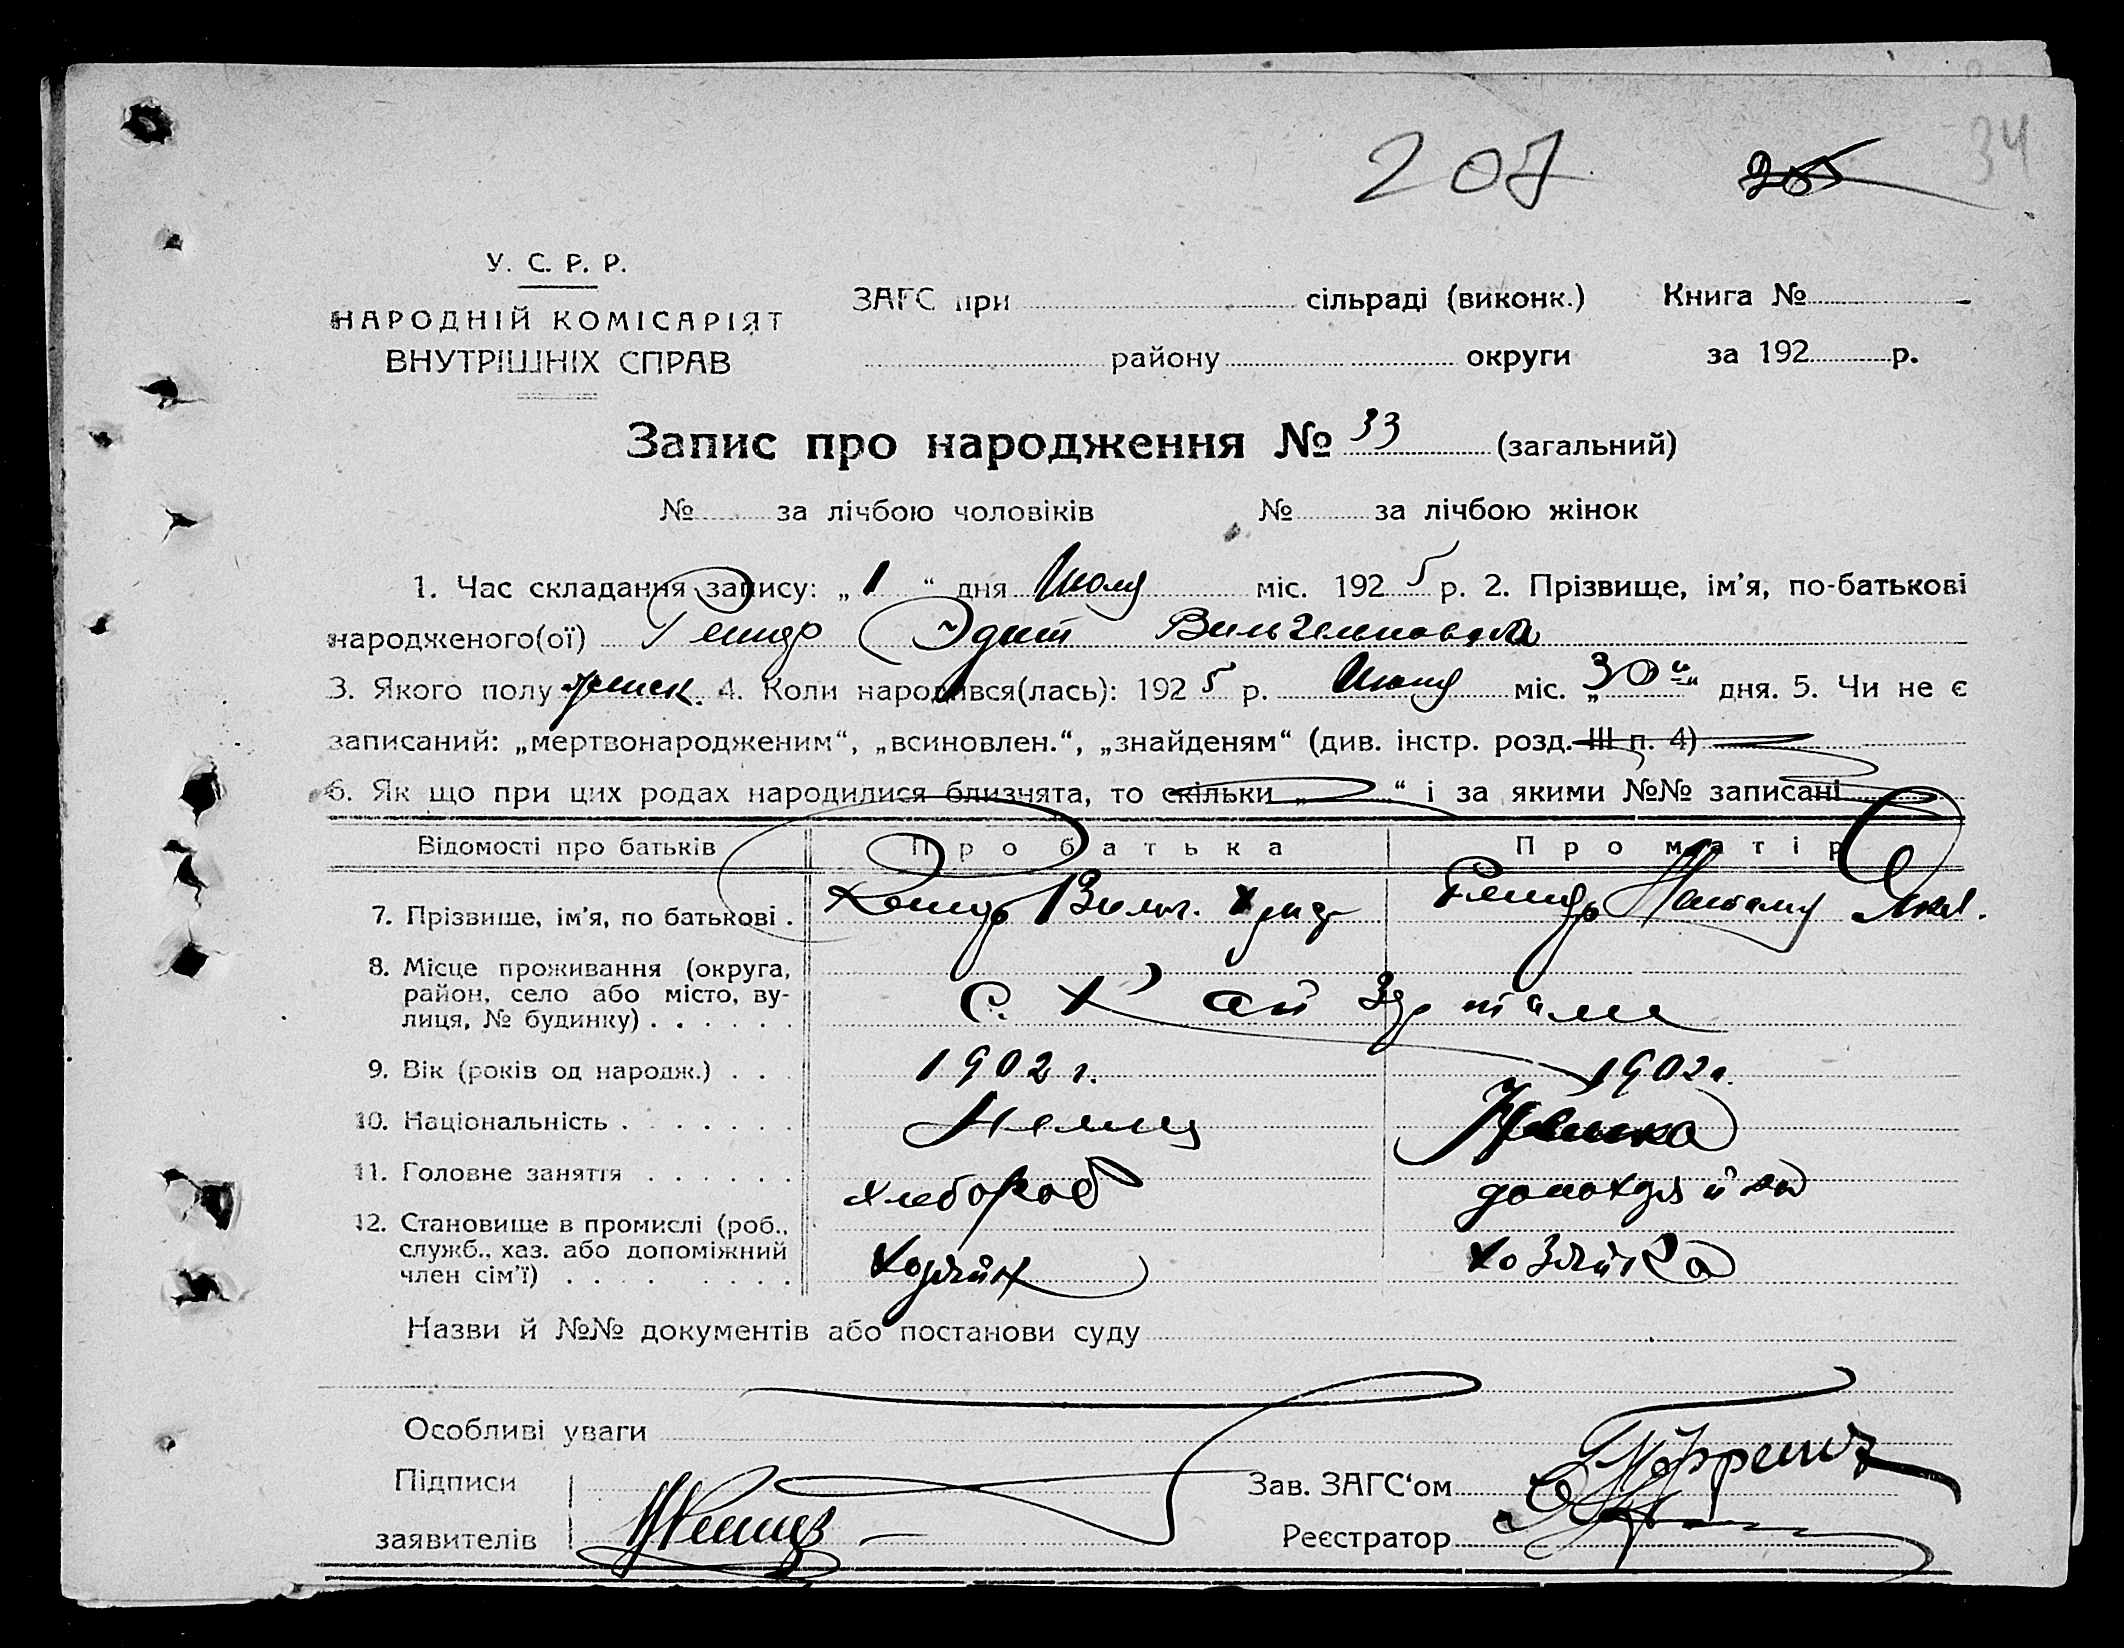 34
207
205
У. С. Р. Р.
НАРОДНІЙ КОМІСАРІЯТ
ВНУТРІШНІХ СПРАВ
ЗАГС при сільраді (виконк.) Книга №
району округи за 192 р.
Запис про народження № 33 (загальний)
№ за лічбою чоловіків № за лічбою жінок
1. Час складання запису: „ 1 “ дня Июля міс. 192 5 р. 2. Прізвище, ім’я, по-батькові
народженого(ої) Эдит
3. Якого полу женск. 4. Коли народився(лась): 192 5 р. міс. „ 30 “ дня. 5. Чи не є
записаний: „мертвонародженим“, „всиновлен.“, „знайденям“ (див. інстр. розд. III п. 4)
6. Як що при цих родах народилися близнята, то скільки „ “ і за якими №№ записані
Відомості про батьків Про батька Про матір
7. Прізвище, ім’я, по батькові .
8. Місце проживання (округа,
район, село або місто, ву-
лиця, № будинку) . . . . . . с.
9. Вік (років од народж.) . . . 1902 г. 1902 г.
10. Національність . . . . . . . Немец Немка
11. Головне заняття . . . . . . хлебороб
12. Становище в промислі (роб.,
служб., хаз. або допоміжний
член сім’ї) . . . . . . . . хозяйн хозяйка
Назви й №№ документів або постанови суду
Особливі уваги
Підписи Зав. ЗАГС‘ом
заявителів Реєстратор